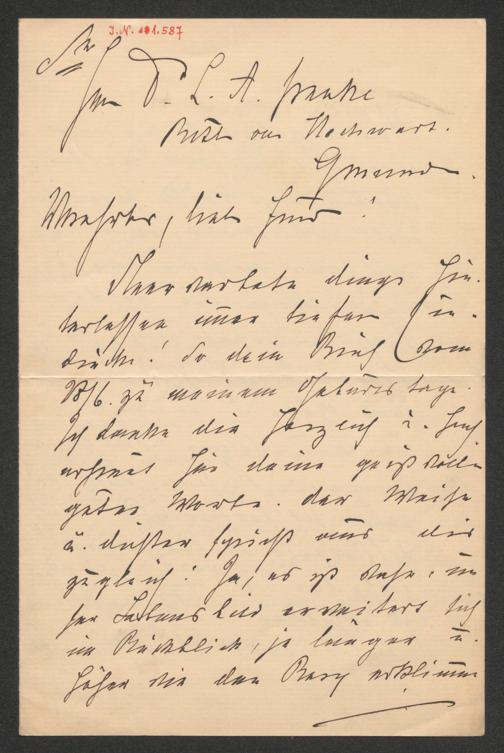 I.N. 101.587
Sr
Herrn Dr. L. A. Frankl
Ritter von Hochwart.
Gmunden.
Verehrter, lieber Freund!
Unerwartete Dinge hin-
terlassen immer tiefere Ein-
drücke! So dein Brief vom
28/6. zu meinem Geburtstage.
Ich danke dir herzlich u. hoch
erfreut für deine geistvollen
guten Worte. Der Weise
u. Dichter spricht aus dir
zugleich! Ja, es ist wahr, un-
ser Lebensbild erweitert sich
im Rückblick, je länger u.
höher wir den Berg erklimmen